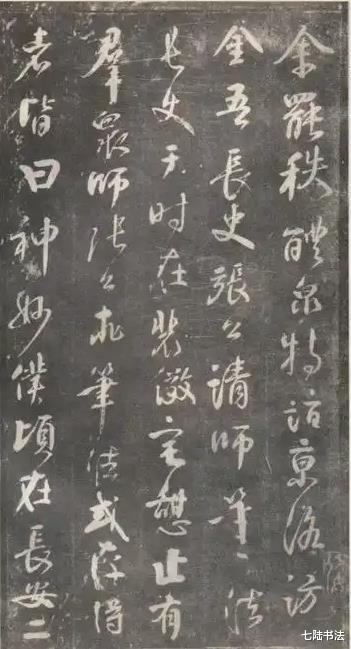 余罷秩醴泉特詣京洛訪
金吾長史張公請師筆法
長史于時在裴儆宅憩止有
羣眾師張公求筆法或存得
者皆曰神妙僕頃在長安二
七陆书法